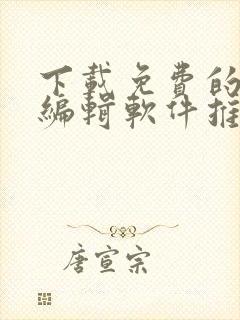 下载免费的
編輯軟件推
唐宣宗